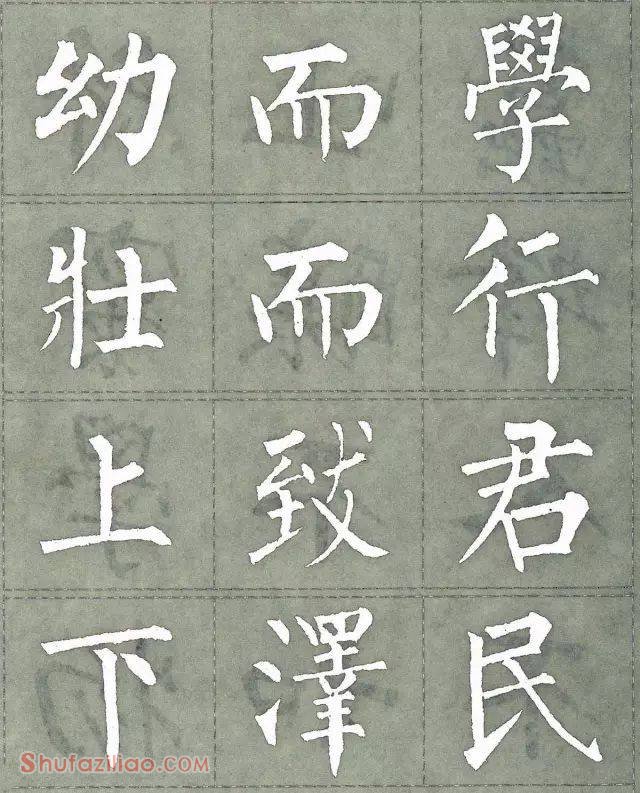 幼而學
壯而行
上致君
下澤民
Shufaziliao.com